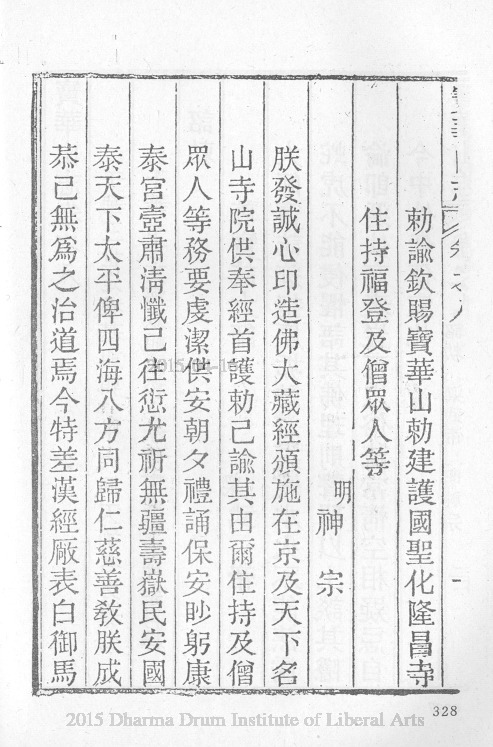 寶華山志 卷之八 一
勅諭欽賜寶華山勅建護國聖化隆昌寺
住持福登及僧眾人等
明神宗
朕發誠心印造佛大藏經頒施在京及天下名
山寺院供奉經首護勅己諭其由爾住持及僧
眾人等務要虔潔供安朝夕禮誦保安眇躬康
泰宮壼肅清懺已往愆尤祈無疆壽嶽民安國
泰天下太平俾四海八方同歸仁慈善教朕成
恭己無爲之治道焉今特差漢經厰表白御馬
328
2015 Dharma Drum Institute of Liberal Arts